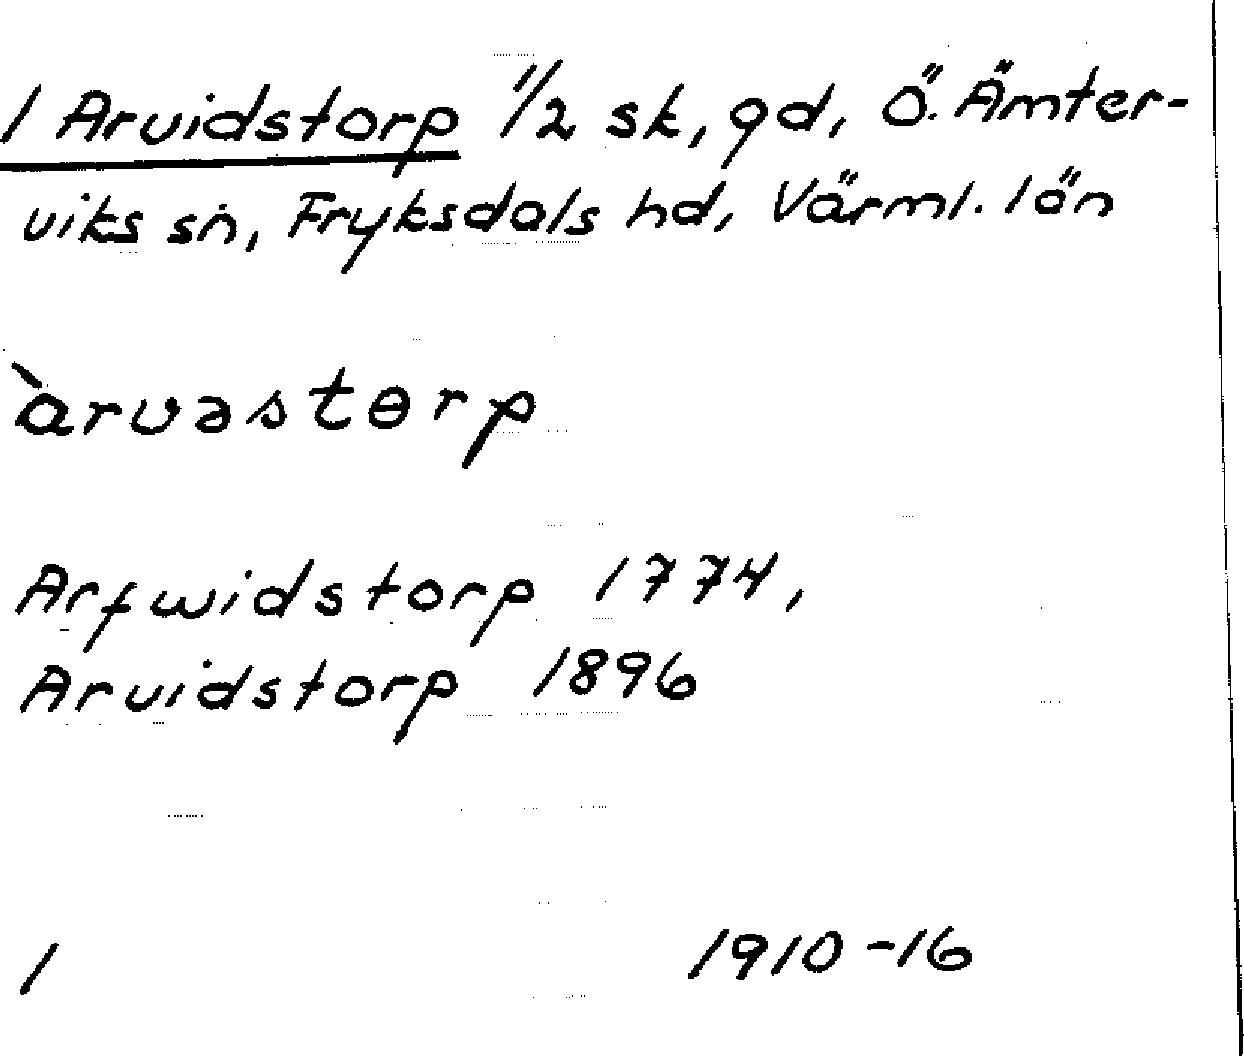 1 Arvidstorp 1/2 sk, gd, Ö. Ämter-
viks sn, Fryksdals hd, Värml. län
àrvəstɵrp
Arfwidstorp 1774,
Arvidstorp 1896
1 1910-16